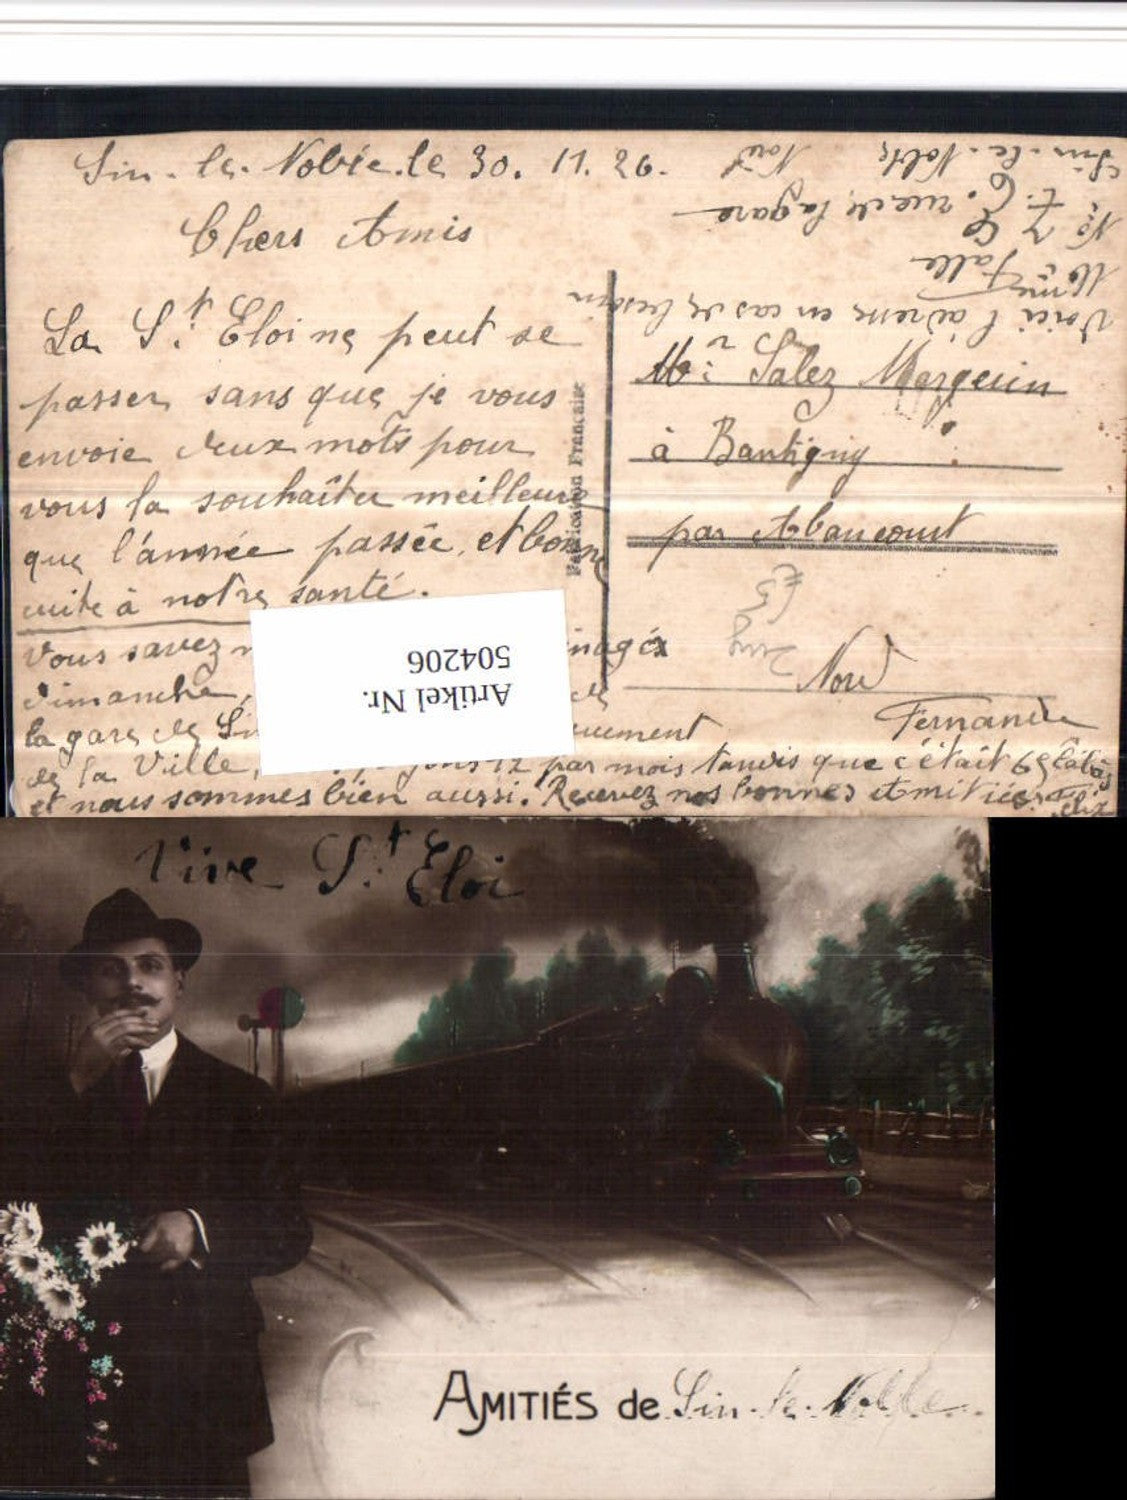 Sin-le-Noble le 30.11.26.
Chers Amis
La St Eloi ne peut se
passer sans que je vous
envoie deux mots pour
vous la souhaiter meilleure
que l'année passée, et bonne
suite à notre santé.
Vous savez
dimanche,
la gare de Sin
de la Ville, par mois tandis que c'était 65
et nous sommes bien aussi. Recevez nos bonnes Amitiés
Fernande
Sin-le-Noble Nord
No 76 rue de la gare
Mme Falle
Voici l'adresse en cas de besoin
Fabrication Française
Mr Salez Margerin
à Bantigny
par Abancourt
Nord
Artikel Nr.
504206
Vive St Eloi
AMITIÉS de Sin-le-Noble